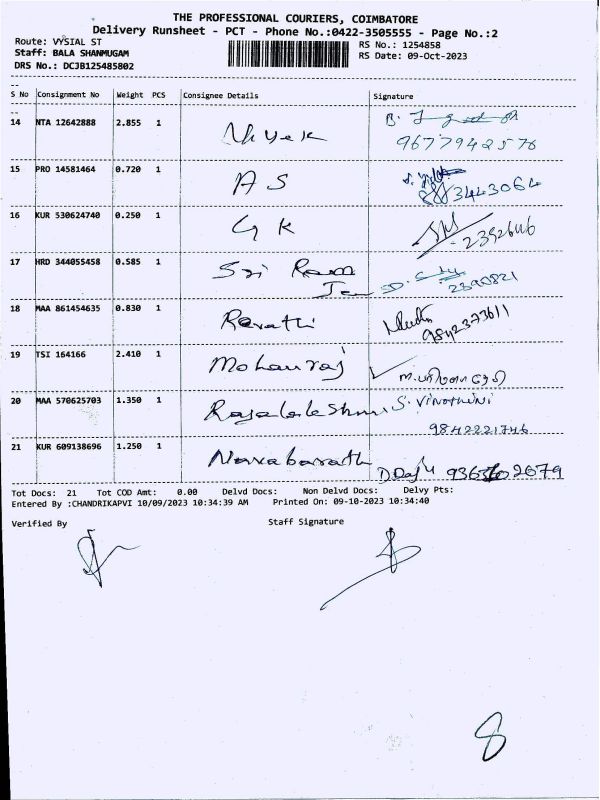 THE PROFESSIONAL COURIERS, COIMBATORE
Delivery Runsheet - PCT - Phone No.:0422-3505555 - Page No.:2
Route: VYSIAL ST
RS No.: 1254858
Staff: BALA SHANMUGAM
RS Date: 09-Oct-2023
DRS No.: DCJB125485802
S No Consignment No Weight PCS Consignee Details Signature
14 NTA 12642888 2.855 1 Vivek B.
9677942576
15 PRO 14581464 0.720 1 A S
3443064
16 KUR 530624740 0.250 1 G K
2392646
17 HRD 344055458 0.585 1 Sri Ram
2390821
18 MAA 861454635 0.830 1 Revathi
9842373611
19 TSI 164166 2.410 1 Mohanraj
20 MAA 570625703 1.350 1 S. VINOTHINI
9842221746
21 KUR 609138696 1.250 1
Tot Docs: 21 Tot COD Amt: 0.00 Delvd Docs: Non Delvd Docs: Delvy Pts:
Entered By :CHANDRIKAPVI 10/09/2023 10:34:39 AM Printed On: 09-10-2023 10:34:40
Verified By Staff Signature
8